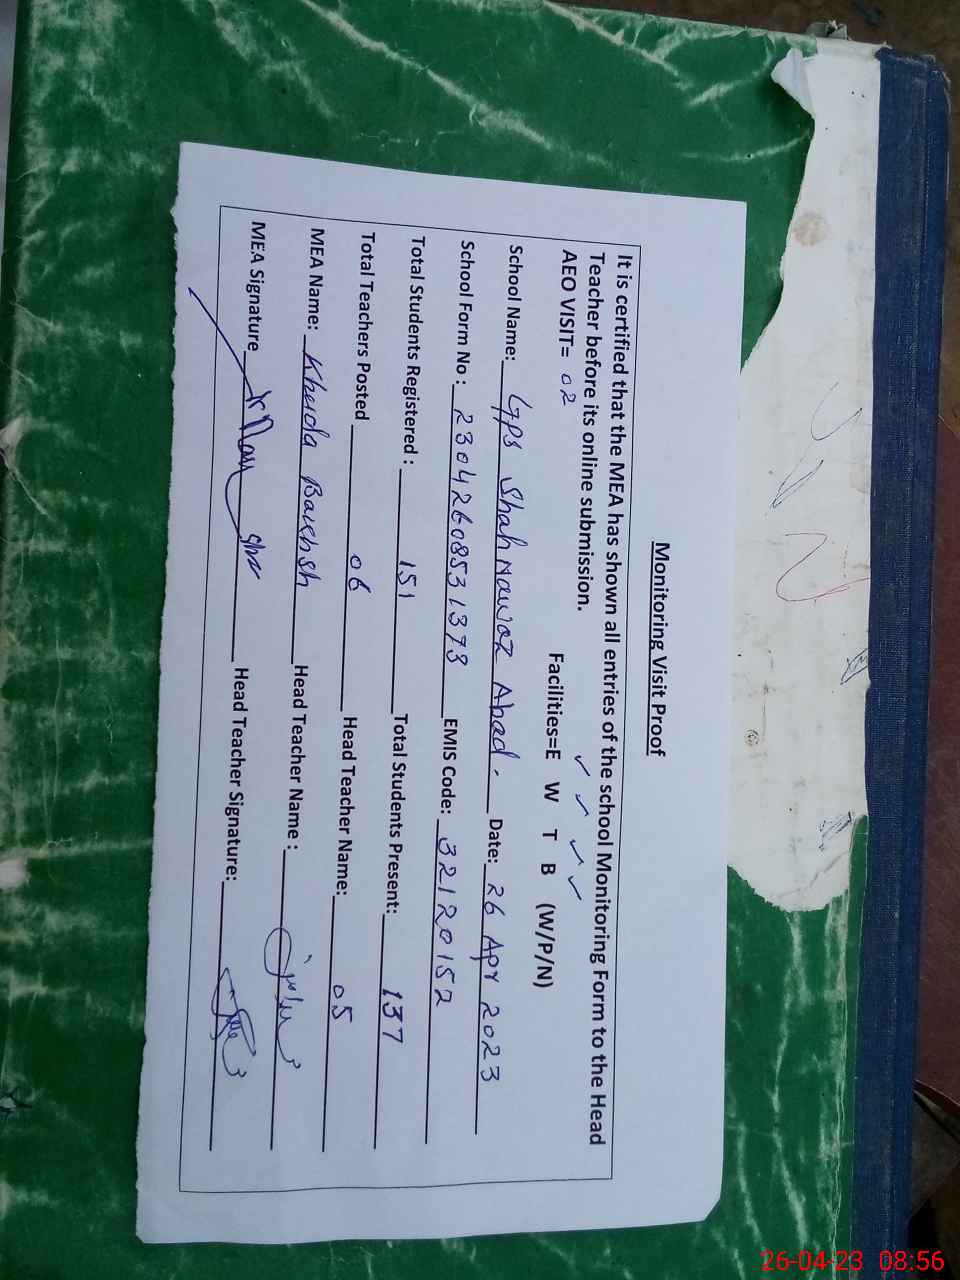 Monitoring Visit Proof
It is certified that the MEA has shown all entries of the school Monitoring Form to the Head
Teacher before its online submission.
AEO VISIT= 02
Facilities=E W T B (W/P/N)
School Name: Gps Shah Nawaz Abad. Date: 26 Apr 2023
School Form No : 23042608531373 EMIS Code: 32120152
Total Students Registered : 151 Total Students Present: 137
Total Teachers Posted 06 Head Teacher Name: 05
MEA Name: Khuda Bakhsh Head Teacher Name :
MEA Signature Head Teacher Signature:
26-04-23 08:56